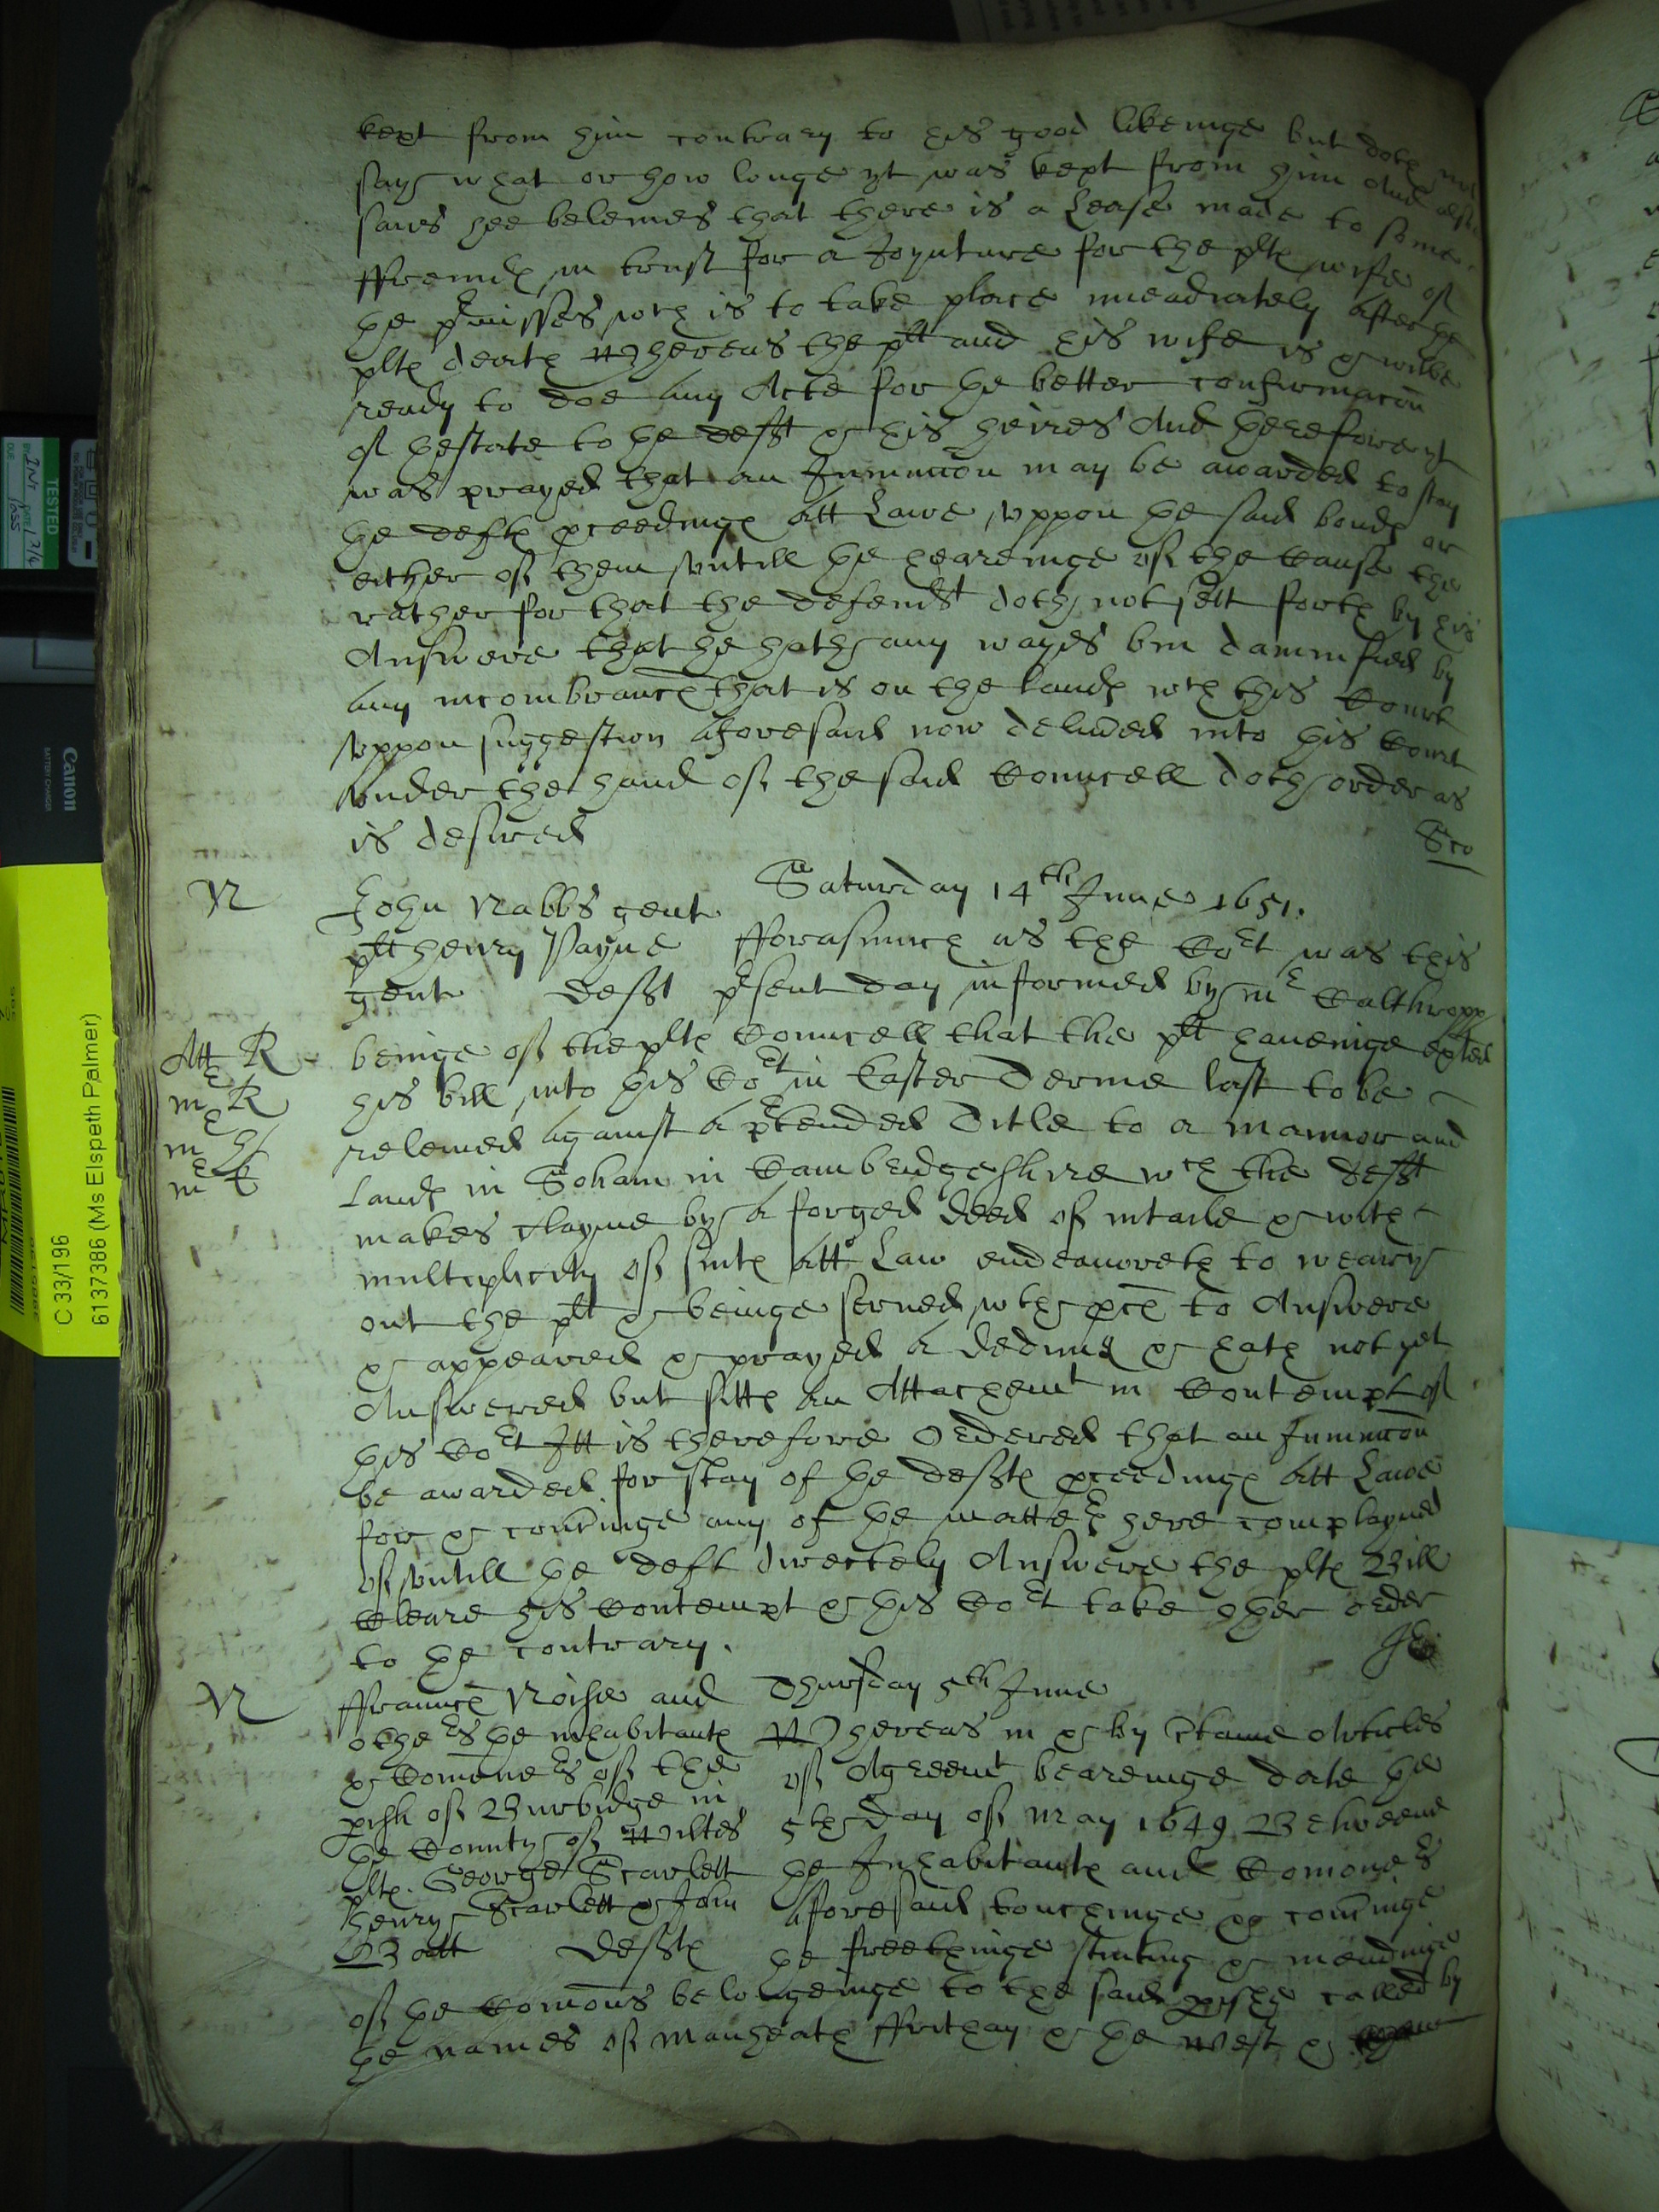 kept from him contrary to his good likeinge but doth not
say what or how longe yt was kept from him And alsoe
saies hee beleives that there is a Lease made to some
ffreinds in trust for a Joynture for the plts wife of
the pmisses wch is to take place imediately after the
plts death Whereas the plt and his wife is & wilbe
ready to doe any Acte for the better confirmacon
of thestate to the defft & his heires And therefore yt
was prayed that an Iniunccon may be awarded to stay
the defts pceedings att Lawe uppon the said bonds or
either of them untill the heareinge of the Cause the
rather for that the defendt doth not sett forth by his
Answere that he hath any wayes bin damnified by
any incombrance that is on the lands wch this Court
uppon suggestion aforesaid now deliued into this Court
under the hand of the said Councell doth order as
is desired
Sco
N
Saturday 14th June 1651.
John Nabbs gent
plt henry Payne fforasmuch as the Cort was this
gent defft psent day informed by mr Calthropp
Att R beinge of the plts Councell that the plt haueinge exhted
mr R his bill into this Cort in Easter Terme last to be
mr H releiued against a ptended Title to a mannor and
mr C Lands in Soham in Cambridgeshire wch the defft
makes clayme by a forged deed of intaile & with
multiplicity of suits att Law endeauoreth to weary
out the plt & beinge serued wth pces to Answere
& appeared & prayed a dedimus & hath not yet
Answered but sitts an Attachemt in Contempt of
this Cort Itt is therefore Ordered that an Iniunccon
be awarded for stay of the deffts pceedings att Lawe
for & concninge any of the matters here complayned
of untill the deft directely Answere the plts Bill
Cleare his Contempt & this Cort take other order
to the contrary.
N
ffrancis Noise and Thursday 5th June
others the inhabitants Whereas in & by ctaine Articles
& Comoners of the of Agreemt beareinge date the
pish of Burbidge in 5th day of may 1649 Betweene
the County of Wiltes the Inhabitants and Comoners
plts. George Scarlett aforesaid toucheinge & concninge
henry Scarlett & John the freethinge stinting & mendinge
Batt deffts
of the Comons belongeinge to the said pishe called by
the names of manheath ffrithay & the West &
TESTED
Canon
BATTERY CHARGER
C 33/196
6137386 (Ms Elspeth Palmer)